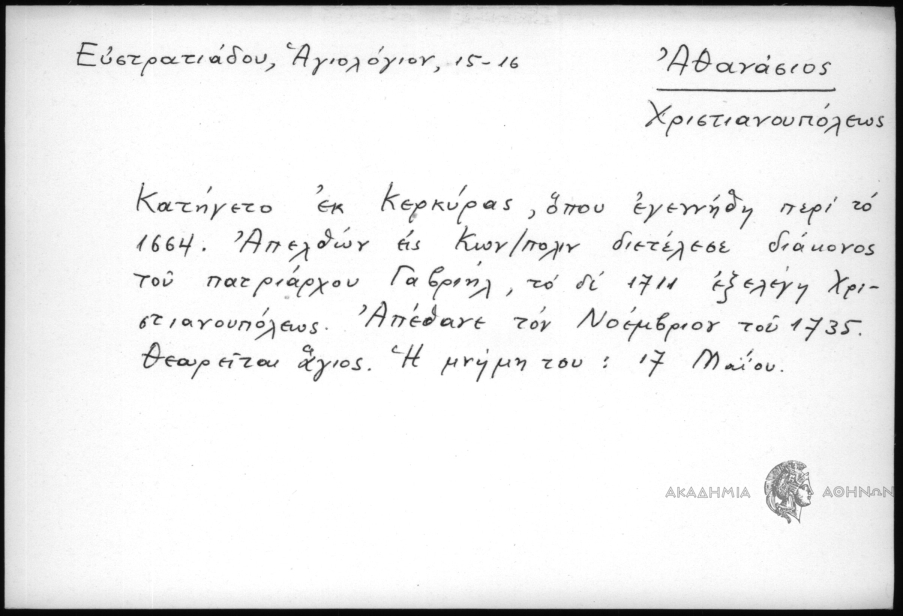 Εὐστρατιάδου, Ἁγιολόγιον, 15-16
Ἀθανάσιος
Χριστιανουπόλεως
Κατήγετο ἐκ Κερκύρας, ὅπου ἐγεννήθη περί τό
1664. Ἀπελθών εἰς Κων/πολιν διετέλεσε διάκονος
τοῦ πατριάρχου Γαβριήλ, τό δέ 1711 ἐξελέγη Χρι-
στιανουπόλεως. Ἀπέθανε τόν Νοέμβριον τοῦ 1735.
Θεωρεῖται ἅγιος. Ἡ μνήμη του : 17 Μαΐου.
ΑΚΑΔΗΜΙΑ ΑΘΗΝΩΝ